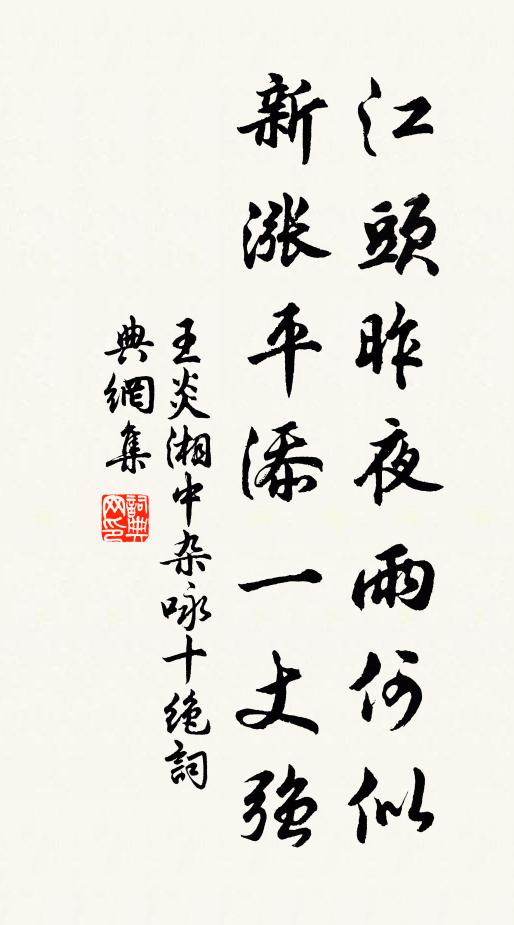 江頭昨夜雨何似
新漲平添一丈強
王炎湘中杂咏十绝詞
典網集
詞典网印